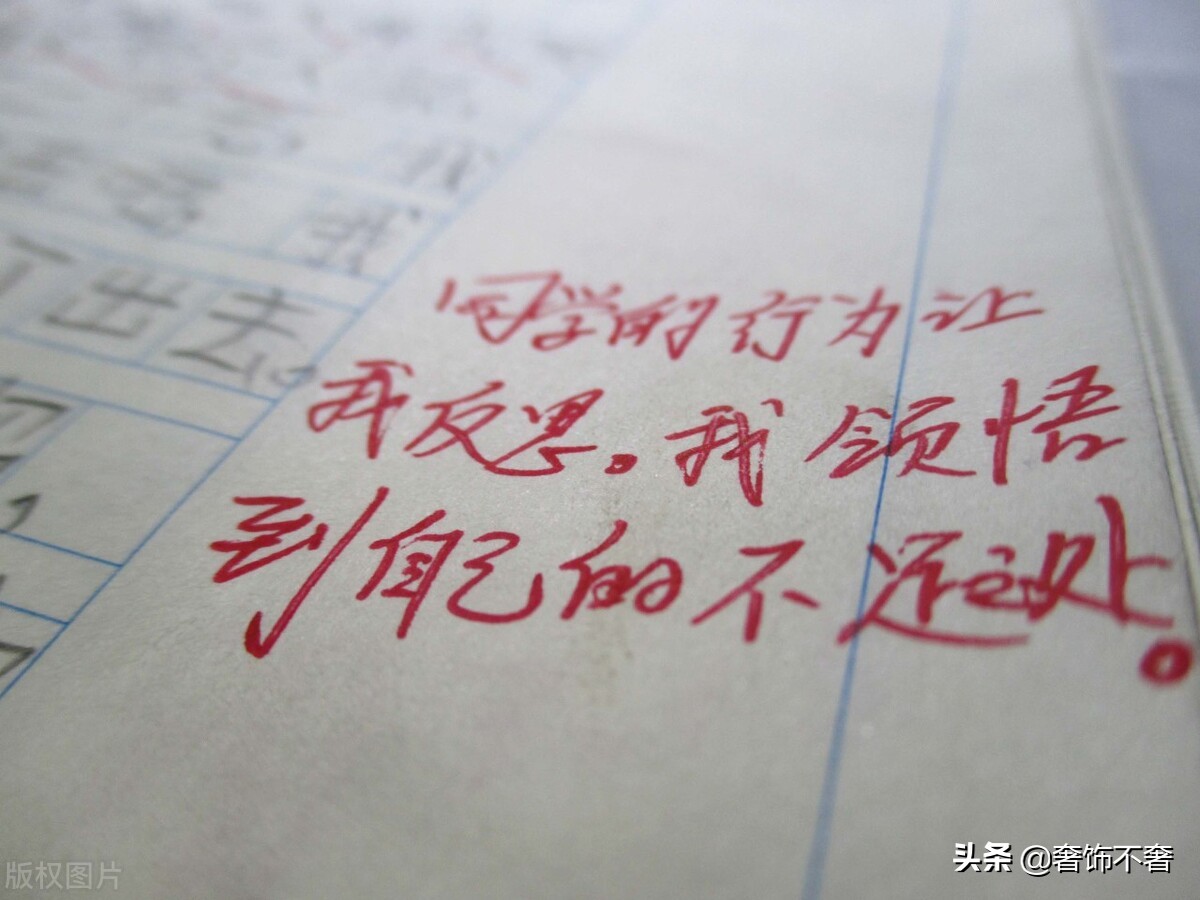 我
我
出去。
同学的行为让
我反思。我领悟
到自己的不足之处。
版权图片
头条 @奢饰不奢